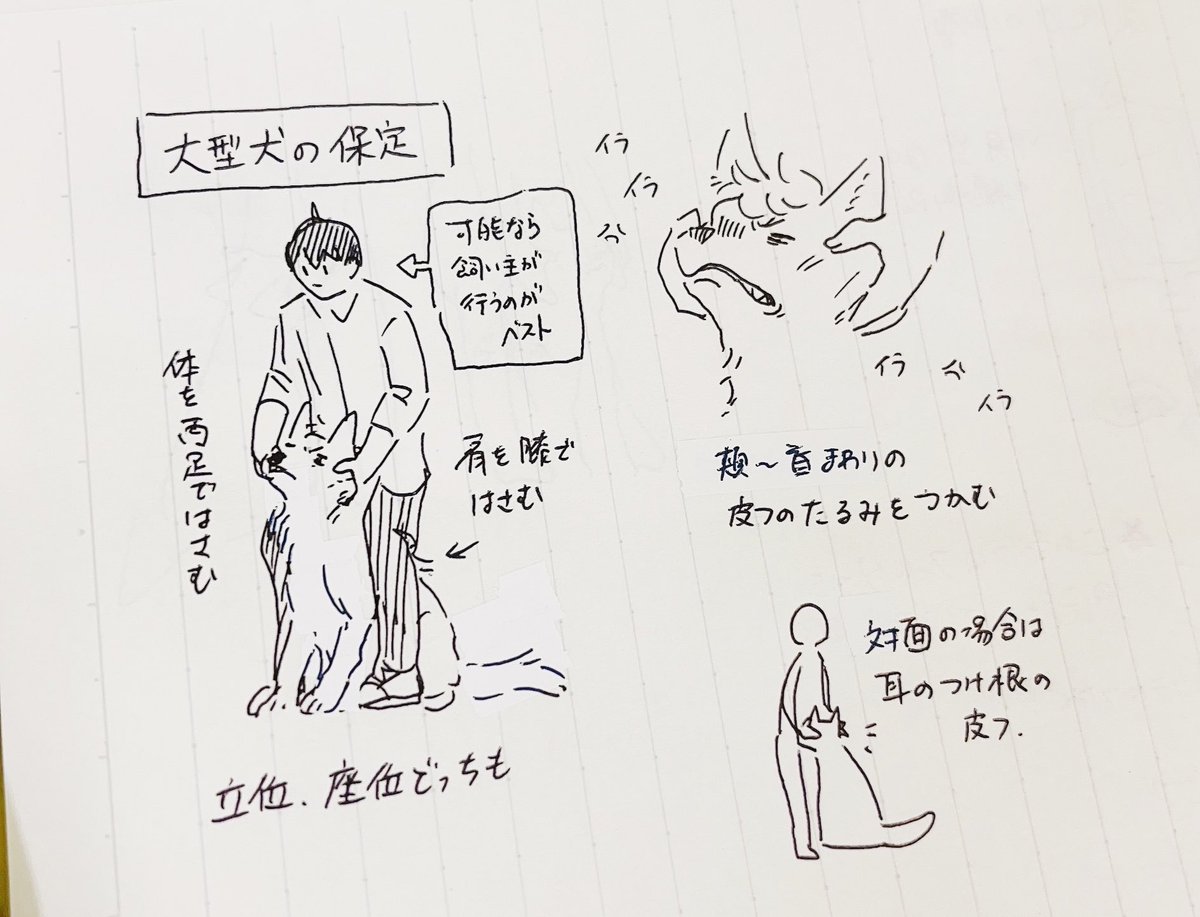 大型犬の保定
可能なら
飼い主が
行うのが
ベスト
体を両足ではさむ
肩を膝で
はさむ
立位、座位どっちも
イラ
イラ
頬〜首まわりの
皮フのたるみをつかむ
イラ
イラ
対面の場合は
耳のつけ根の
皮フ.